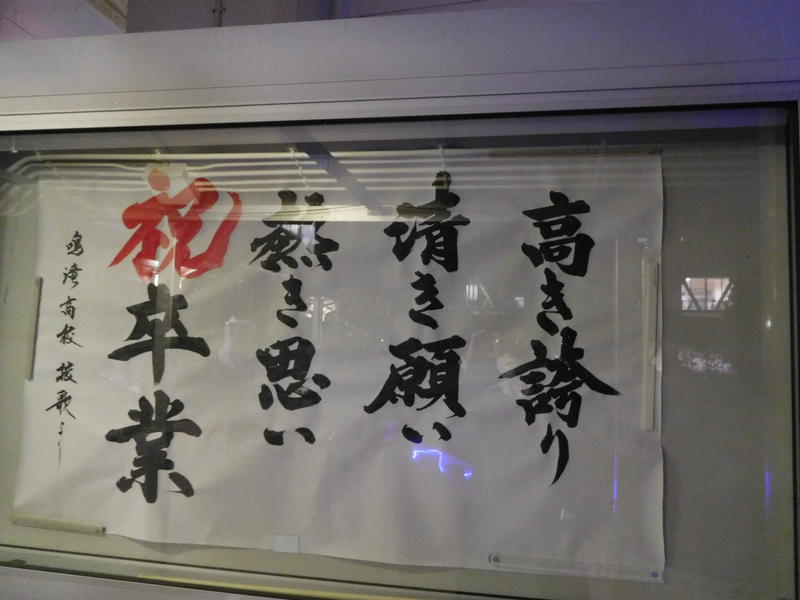 高き誇り
清き願い
熱き思い
祝卒業
鳴滝高校 校歌より